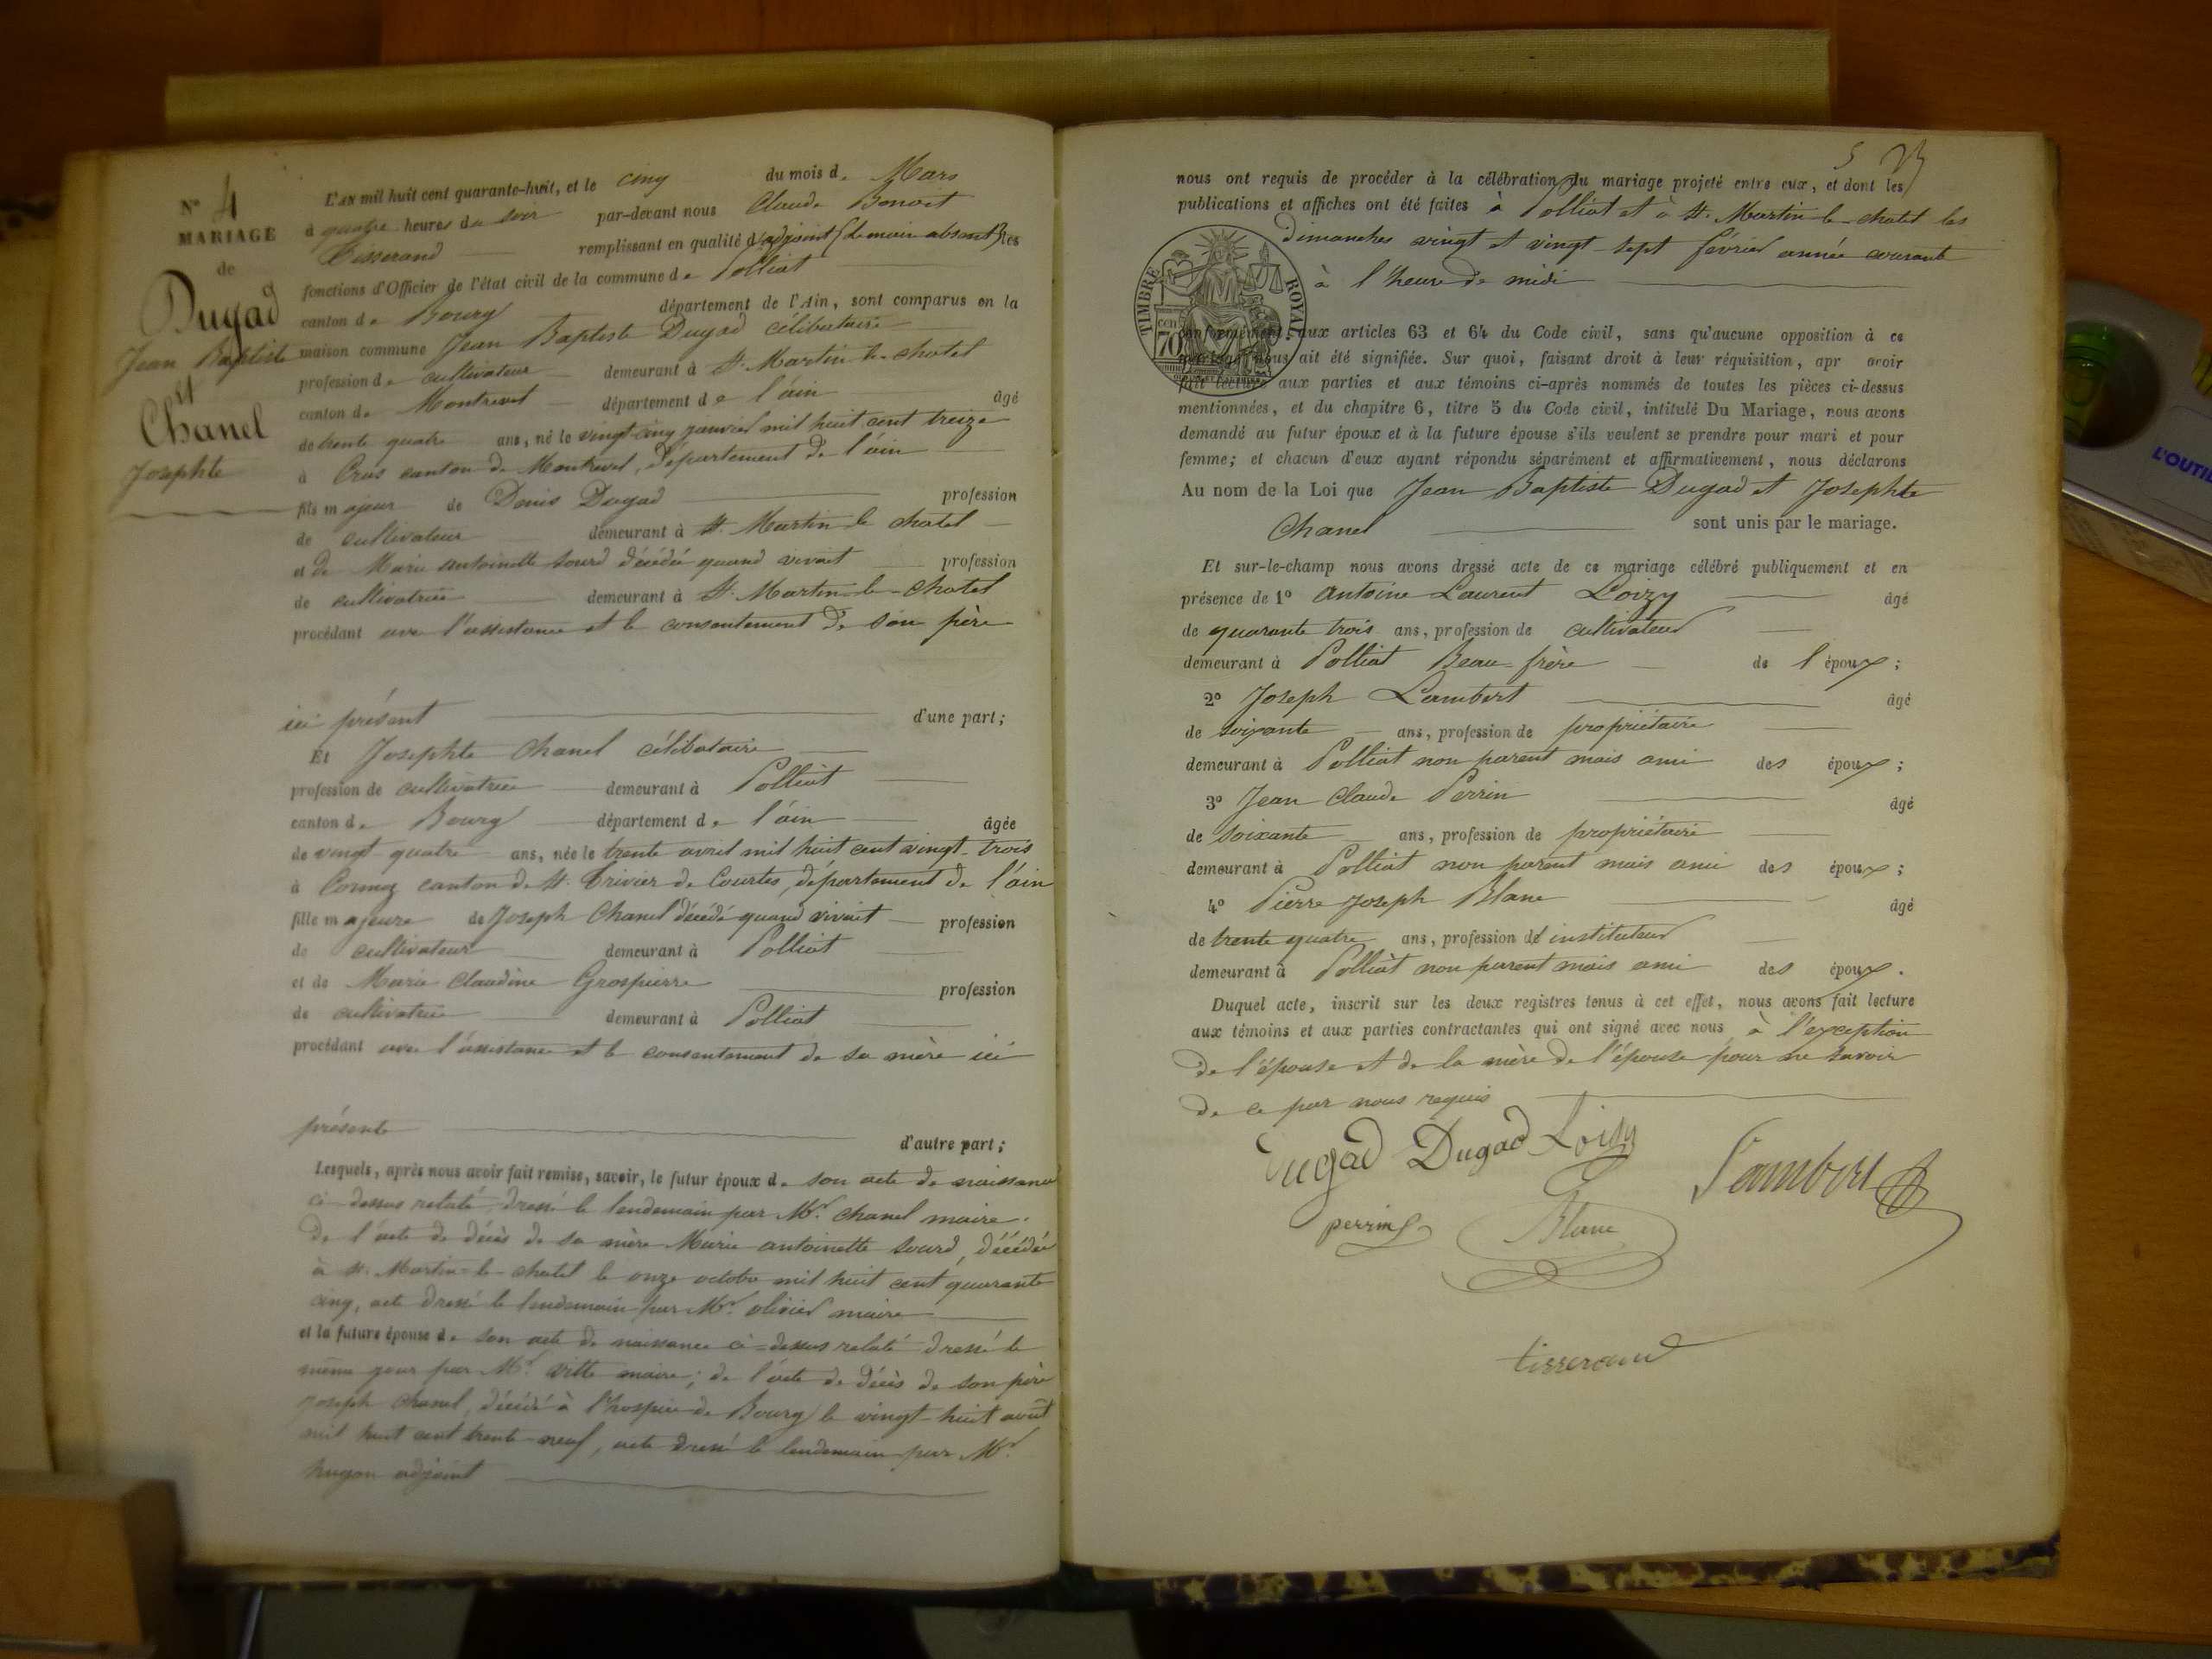 N° 4
MARIAGE
de
Dugad
Jean Baptiste
et
Chanel
Josephte
L'AN mil huit cent quarante-huit, et le cinq du mois de Mars
à quatre heures du soir par-devant nous Claude Benoit
Tisserand remplissant en qualité d'adjoint (le maire absent) les
fonctions d'Officier de l'état civil de la commune de Polliat
canton de Bourg département de l'Ain, sont comparus en la
maison commune Jean Baptiste Dugad célibataire
profession de cultivateur demeurant à St. Martin-le-chatel
canton de Montrevel département de l'ain âgé
de trente quatre ans, né le vingt-cinq janvier mil huit cent treize
à Cras canton de Montrevel, département de l'ain
fils majeur de Denis Dugad profession
de cultivateur demeurant à St. Martin-le chatel
et de Marie antoinette sourd décédée quand vivait profession
de cultivatrice demeurant à St. Martin-le-chatel
procédant avec l'assistance et le consentement de son père
ici présent d'une part;
Et Josephte Chanel célibataire
profession de cultivatrice demeurant à Polliat
canton de Bourg département de l'ain âgée
de vingt quatre ans, née le trente avril mil huit cent vingt-trois
à Cormoz canton de St. Trivier de Courtes, département de l'ain
fille majeure de Joseph Chanel décédé quand vivait profession
de cultivateur demeurant à Polliat
et de Marie Claudine Grospierre profession
de cultivatrice demeurant à Polliat
procédant avec l'assistance et le consentement de sa mère ici
présente d'autre part;
Lesquels, après nous avoir fait remise, savoir, le futur époux de son acte de naissance
ci-dessus relaté dressé le lendemain par Mr. Chanel maire.
De l'acte de décès de sa mère Marie antoinette sourd, décédée
à St. Martin-le-chatel le onze octobre mil huit cent quarante
cinq, acte dressé le lendemain par Mr. olivier maire
et la future épouse de son acte de naissance ci-dessus relaté dressé le
même jour par Mr. vitte maire; de l'acte de décès de son père
joseph chanel, décédé à l'hospice de Bourg le vingt-huit août
mil huit cent trente-neuf, acte dressé le lendemain par Mr.
hugon adjoint
5
nous ont requis de procéder à la célébration du mariage projeté entre eux, et dont les
publications et affiches ont été faites à Polliat et à St. Martin-le-chatel les
dimanches vingt et vingt-sept février année courante
à l'heure de midi
TIMBRE ROYAL
70
conformément aux articles 63 et 64 du Code civil, sans qu'aucune opposition à ce
mariage nous ait été signifiée. Sur quoi, faisant droit à leur réquisition, apr avoir
fait lecture aux parties et aux témoins ci-après nommés de toutes les pièces ci-dessus
mentionnées, et du chapitre 6, titre 5 du Code civil, intitulé Du Mariage, nous avons
demandé au futur époux et à la future épouse s'ils veulent se prendre pour mari et pour
femme; et chacun d'eux ayant répondu séparément et affirmativement, nous déclarons
Au nom de la Loi que Jean Baptiste Dugad et Josephte
Chanel sont unis par le mariage.
Et sur-le-champ nous avons dressé acte de ce mariage célébré publiquement et en
présence de 1° Antoine Laurent Loizy âgé
de quarante trois ans, profession de cultivateur
demeurant à Polliat Beau-frère de l'époux;
2° Joseph Lambert âgé
de soixante ans, profession de propriétaire
demeurant à Polliat non parent mais ami des époux;
3° Jean Claude Perrin âgé
de soixante ans, profession de propriétaire
demeurant à Polliat non parent mais ami des époux;
4° Pierre Joseph Blanc âgé
de trente quatre ans, profession d'instituteur
demeurant à Polliat non parent mais ami des époux.
Duquel acte, inscrit sur les deux registres tenus à cet effet, nous avons fait lecture
aux témoins et aux parties contractantes qui ont signé avec nous à l'exception
de l'épouse et de la mère de l'épouse pour ne savoir
de ce par nous requis
Dugad Dugad Loisy Lambert
perrin Blanc
tisserand
L'OUTIL